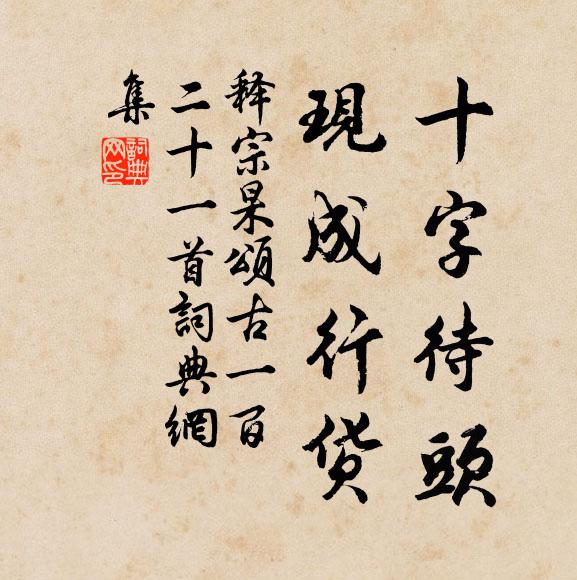 十字待頭
現成行货
释宗杲頌古一百
二十一首詞典網
集
詞典网印